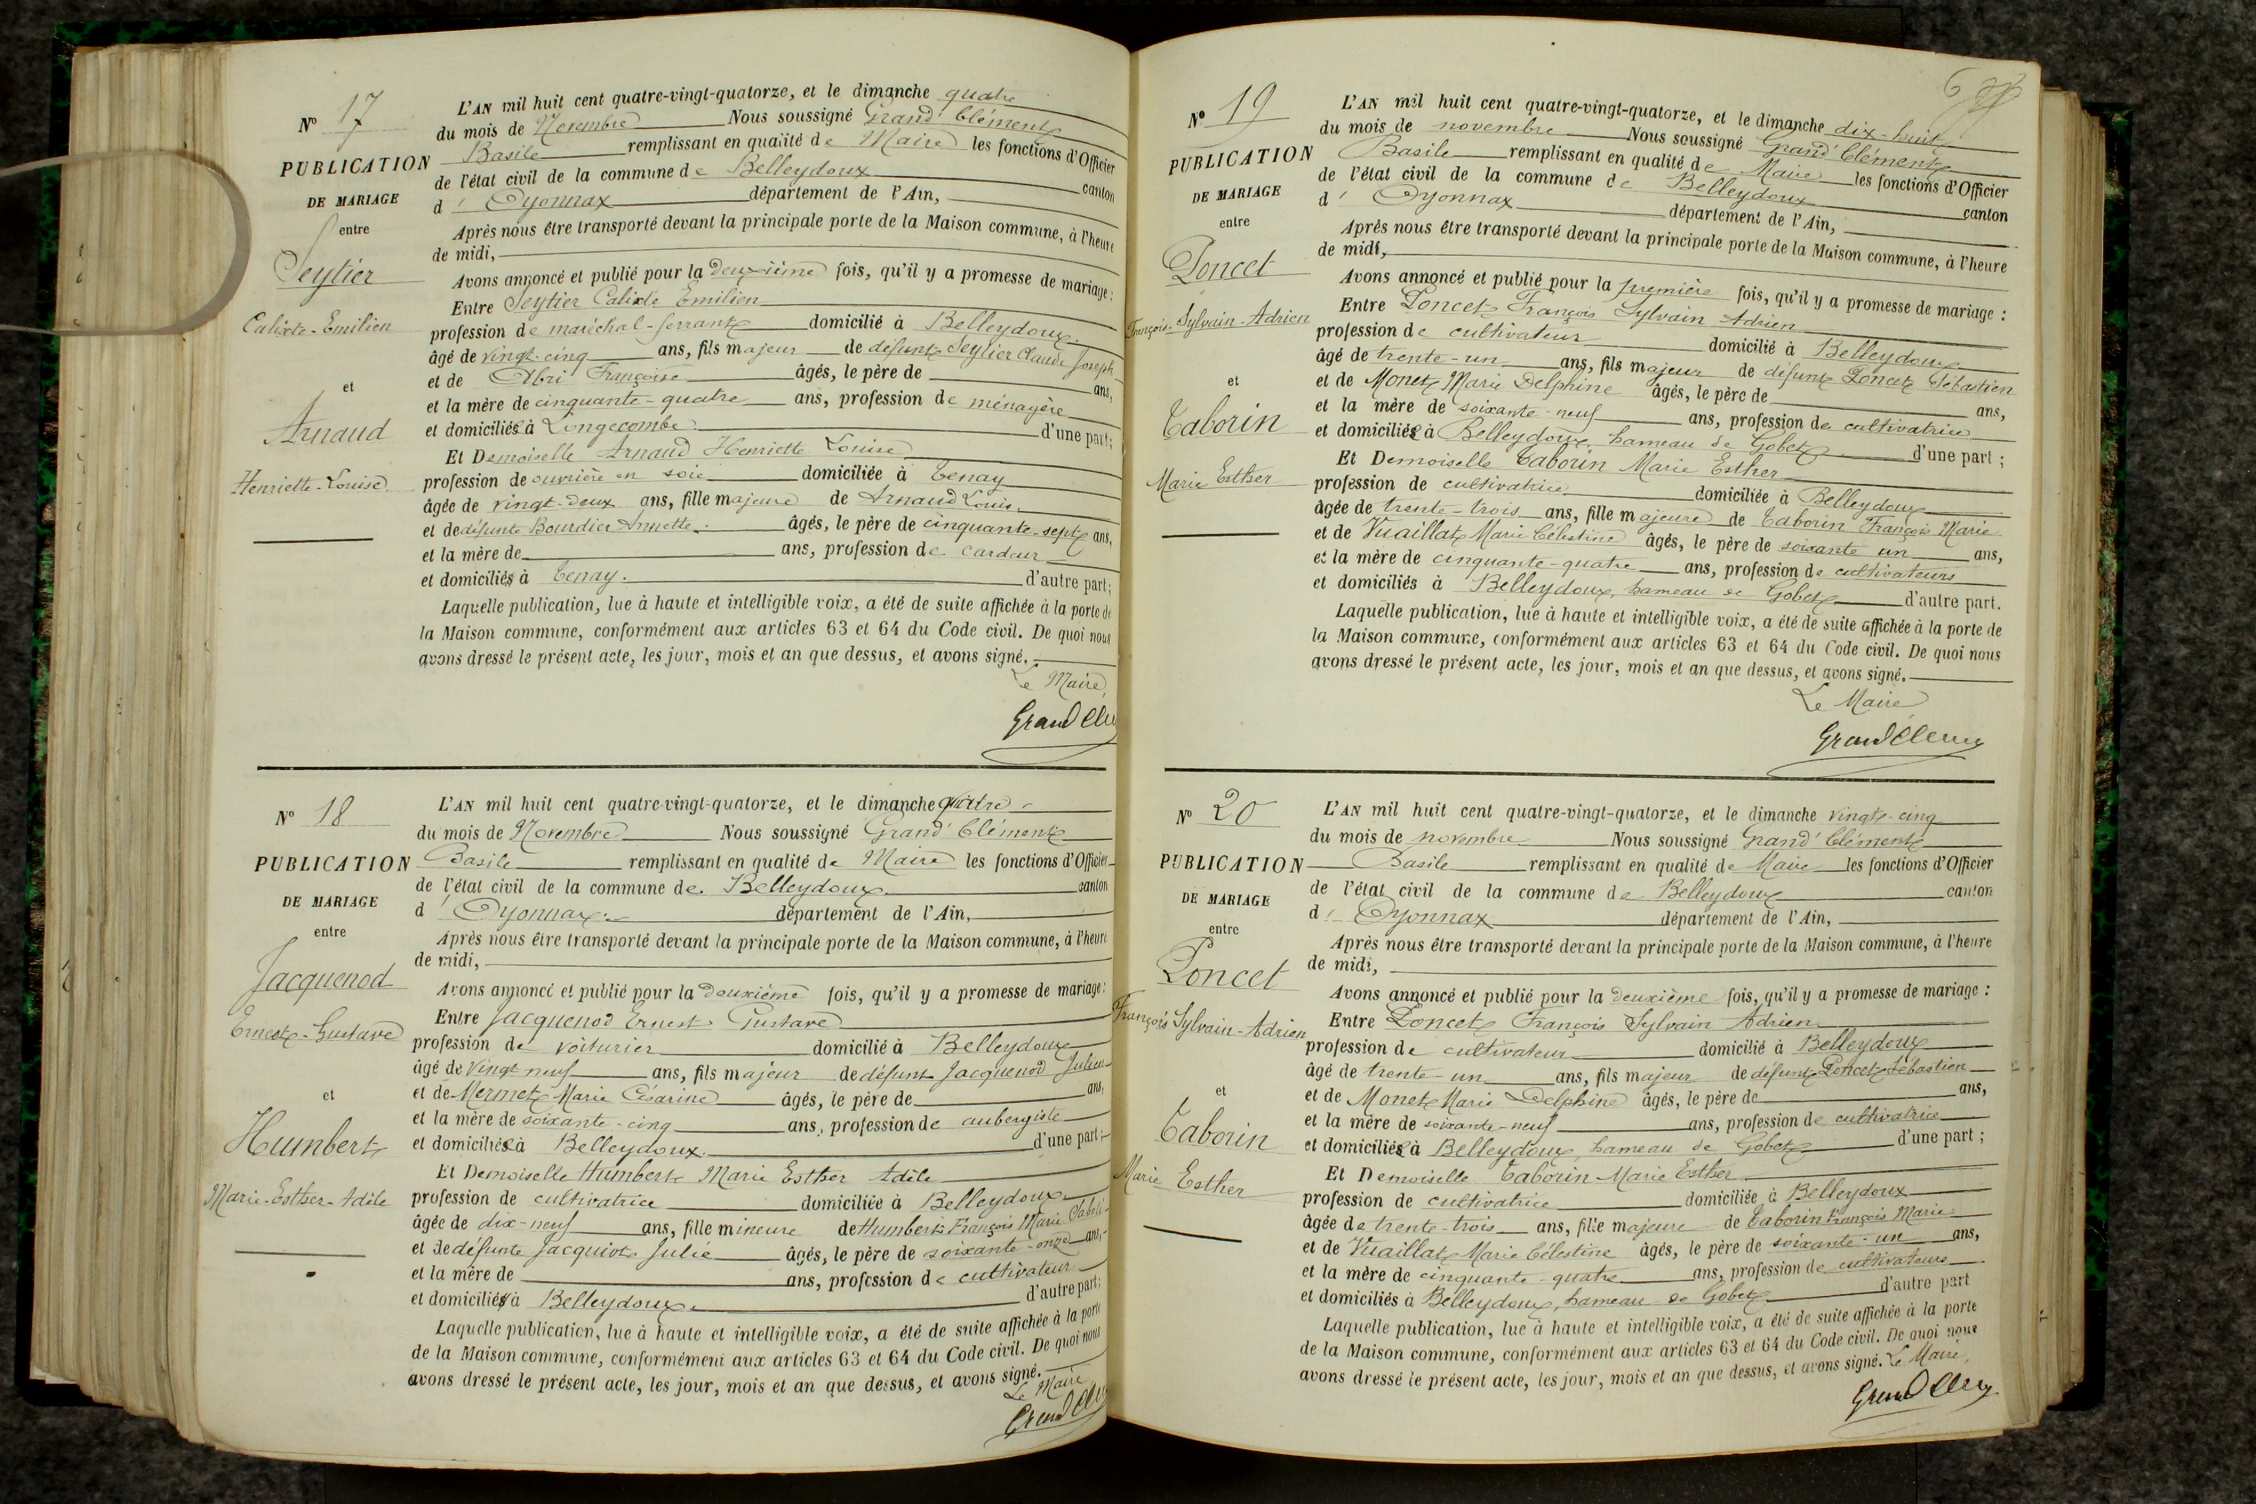 Nº 17
PUBLICATION
DE MARIAGE
entre
Seytier
Calixte-Emilien
et
Arnaud
Henriette-Louise
L'AN mil huit cent quatre-vingt-quatorze, et le dimanche quatre
du mois de Novembre Nous soussigné Grand'Clément
Basile remplissant en qualité de Maire les fonctions d'Officier
de l'état civil de la commune de Belleydoux canton
d'Oyonnax département de l'Ain,
Après nous être transporté devant la principale porte de la Maison commune, à l'heure
de midi,
Avons annoncé et publié pour la deuxième fois, qu'il y a promesse de mariage:
Entre Seytier Calixte Emilien
profession de maréchal-ferrant domicilié à Belleydoux.
âgé de vingt-cinq ans, fils majeur de défunt Seytier Claude Joseph
et de Abri Françoise âgés, le père de ans,
et la mère de cinquante-quatre ans, profession de ménagère
et domiciliée à Longecombe d'une part;
Et Demoiselle Arnaud Henriette Louise
profession de ouvrière en soie domiciliée à Tenay
âgée de vingt-deux ans, fille majeure de Arnaud Louis
et de défunte Bourdier Annette. âgés, le père de cinquante-sept ans,
et la mère de ans, profession de cardeur
et domiciliés à Tenay. d'autre part;
Laquelle publication, lue à haute et intelligible voix, a été de suite affichée à la porte de
la Maison commune, conformément aux articles 63 et 64 du Code civil. De quoi nous
avons dressé le présent acte, les jour, mois et an que dessus, et avons signé.
Le Maire,
Nº 18
PUBLICATION
DE MARIAGE
entre
Jacquenod
Ernest-Gustave
et
Humbert
Marie-Esther-Adèle
L'AN mil huit cent quatre-vingt-quatorze, et le dimanche quatre
du mois de Novembre Nous soussigné Grand'Clément
Basile remplissant en qualité de Maire les fonctions d'Officier
de l'état civil de la commune de Belleydoux canton
d'Oyonnax département de l'Ain,
Après nous être transporté devant la principale porte de la Maison commune, à l'heure
de midi,
Avons annoncé et publié pour la deuxième fois, qu'il y a promesse de mariage:
Entre Jacquenod Ernest Gustave
profession de voiturier domicilié à Belleydoux
âgé de vingt neuf ans, fils majeur de défunt Jacquenod Julien
et de Mermet Marie Césarine âgés, le père de ans,
et la mère de soixante-cinq ans, profession de aubergiste
et domiciliée à Belleydoux. d'une part;
Et Demoiselle Humbert Marie Esther Adèle
profession de cultivatrice domiciliée à Belleydoux
âgée de dix-neuf ans, fille mineure de Humbert François Marie
et de défunte Jacquiot Julie âgés, le père de soixante-onze ans,
et la mère de ans, profession de cultivateur
et domicilié à Belleydoux. d'autre part;
Laquelle publication, lue à haute et intelligible voix, a été de suite affichée à la porte
de la Maison commune, conformément aux articles 63 et 64 du Code civil. De quoi nous
avons dressé le présent acte, les jour, mois et an que dessus, et avons signé.
Le Maire
Nº 19
PUBLICATION
DE MARIAGE
entre
Poncet
François-Sylvain-Adrien
et
Taborin
Marie Esther
L'AN mil huit cent quatre-vingt-quatorze, et le dimanche dix-huit
du mois de novembre Nous soussigné Grand'Clément
Basile remplissant en qualité de Maire les fonctions d'Officier
de l'état civil de la commune de Belleydoux canton
d'Oyonnax département de l'Ain,
Après nous être transporté devant la principale porte de la Maison commune, à l'heure
de midi,
Avons annoncé et publié pour la première fois, qu'il y a promesse de mariage :
Entre Poncet François Sylvain Adrien
profession de cultivateur domicilié à Belleydoux
âgé de trente-un ans, fils majeur de défunt Poncet Sébastien
et de Monet Marie Delphine âgés, le père de ans,
et la mère de soixante-neuf ans, profession de cultivatrice
et domiciliée à Belleydoux, hameau de Gobet d'une part ;
Et Demoiselle Taborin Marie Esther
profession de cultivatrice domiciliée à Belleydoux
âgée de trente-trois ans, fille majeure de Taborin François Marie
et de Vuaillat Marie Célestine âgés, le père de soixante un ans,
et la mère de cinquante-quatre ans, profession de cultivateurs
et domiciliés à Belleydoux, hameau de Gobet d'autre part.
Laquelle publication, lue à haute et intelligible voix, a été de suite affichée à la porte de
la Maison commune, conformément aux articles 63 et 64 du Code civil. De quoi nous
avons dressé le présent acte, les jour, mois et an que dessus, et avons signé.
Le Maire
Nº 20
PUBLICATION
DE MARIAGE
entre
Poncet
François Sylvain-Adrien
et
Taborin
Marie Esther
L'AN mil huit cent quatre-vingt-quatorze, et le dimanche vingt-cinq
du mois de novembre Nous soussigné Grand'Clément
Basile remplissant en qualité de Maire les fonctions d'Officier
de l'état civil de la commune de Belleydoux canton
d'Oyonnax département de l'Ain,
Après nous être transporté devant la principale porte de la Maison commune, à l'heure
de midi,
Avons annoncé et publié pour la deuxième fois, qu'il y a promesse de mariage :
Entre Poncet François Sylvain Adrien
profession de cultivateur domicilié à Belleydoux
âgé de trente-un ans, fils majeur de défunt Poncet Sébastien
et de Monet Marie Delphine âgés, le père de ans,
et la mère de soixante-neuf ans, profession de cultivatrice
et domiciliée à Belleydoux, hameau de Gobet d'une part ;
Et Demoiselle Taborin Marie Esther
profession de cultivatrice domiciliée à Belleydoux
âgée de trente-trois ans, fille majeure de Taborin François Marie
et de Vuaillat Marie Célestine âgés, le père de soixante-un ans,
et la mère de cinquante-quatre ans, profession de cultivateurs
et domiciliés à Belleydoux, hameau de Gobet d'autre part
Laquelle publication, lue à haute et intelligible voix, a été de suite affichée à la porte
de la Maison commune, conformément aux articles 63 et 64 du Code civil. De quoi nous
avons dressé le présent acte, les jour, mois et an que dessus, et avons signé. Le Maire,